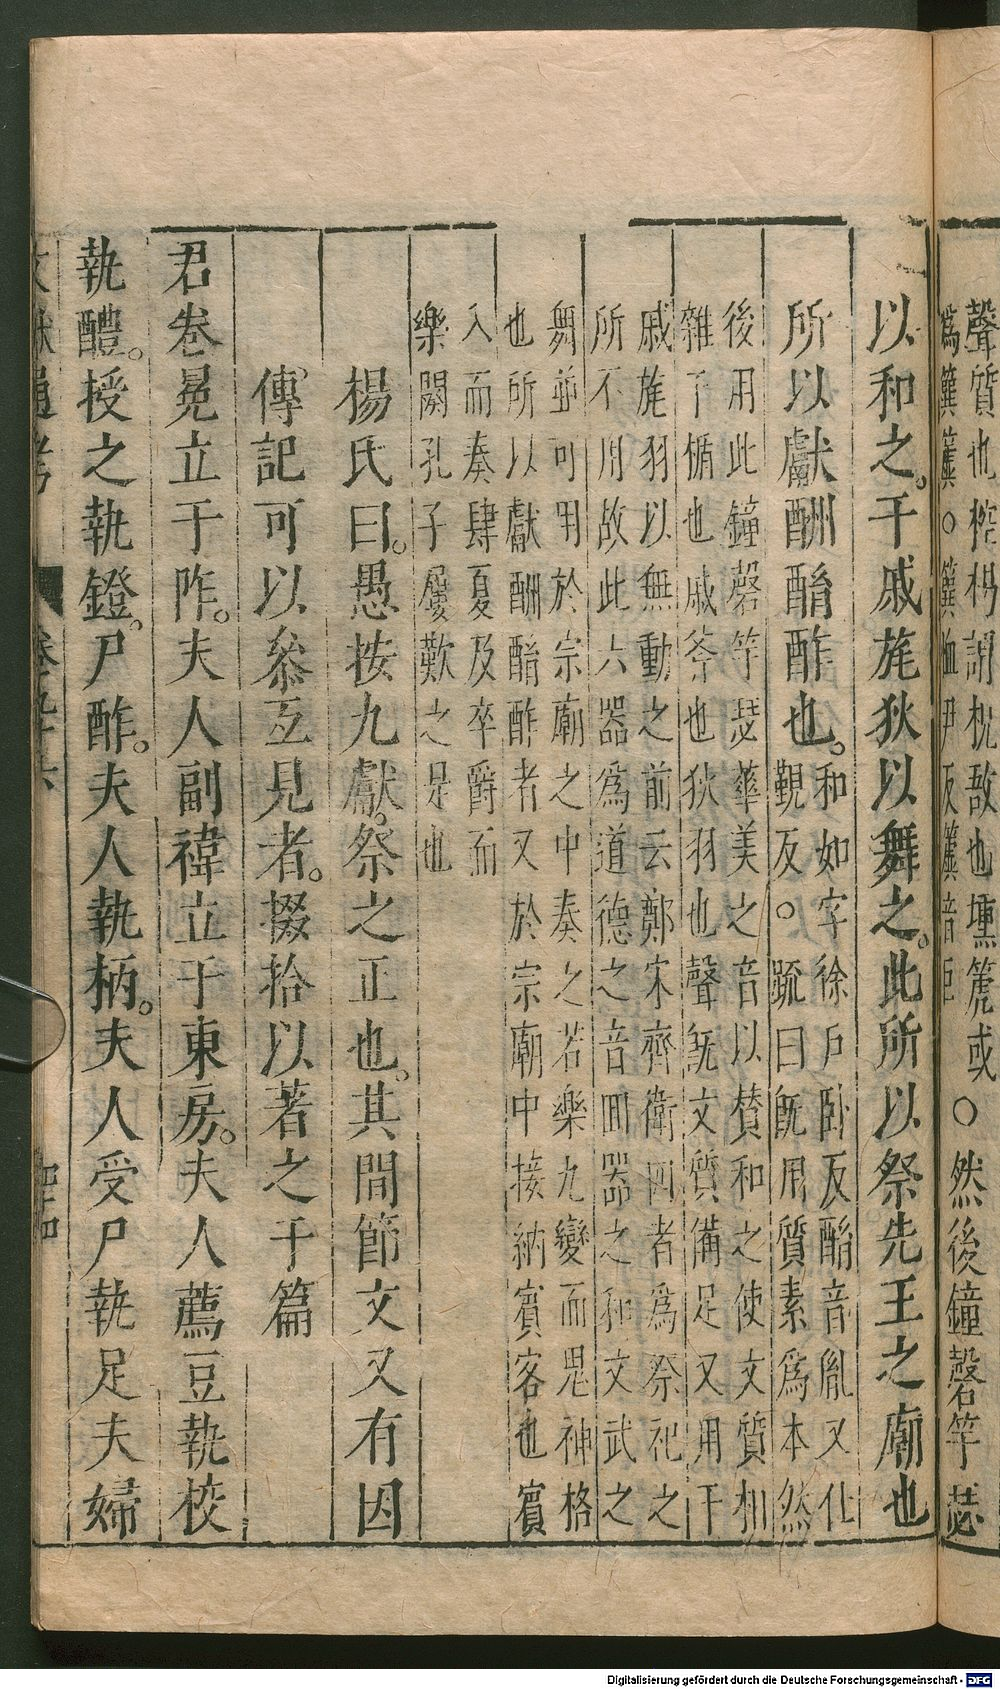 聲質也椌楬謂柷敔也壎箎或
爲簨簴○簨血尹反簴音巨
○然後鐘磬竽瑟
以和之。干戚旄狄以舞之。此所以祭先王之廟也
所以獻酬酳酢也。
和如字徐戶卧反酳音胤又仕
覲反○䟽曰旣用質素爲本然
後用此鐘磬竽瑟華美之音以賛和之使文質相
雜干楯也戚斧也狄羽也聲旣文質備足又用干
戚旄羽以無動之前云鄭宋齊衛四者爲祭祀之
所不用故此六器爲道德之音四器之和文武之
舞並可用於宗廟之中奏之若樂九變而思神格
也所以獻酬酳酢者又於宗廟中接納賓客也賓
入而奏肆夏及卒爵而
樂闋孔子屢歎之是也
楊氏曰。愚按九獻。祭之正也。其間節文又有因
傳記可以叅互見者。掇拾以著之于篇
君卷冕立于阼。夫人副褘立于東房。夫人薦豆執校
執醴。授之執鐙。尸酢。夫人執柄。夫人受尸執足夫婦
文獻通考 卷九十六 四十四
Digitalisierung gefördert durch die Deutsche Forschungsgemeinschaft - DFG